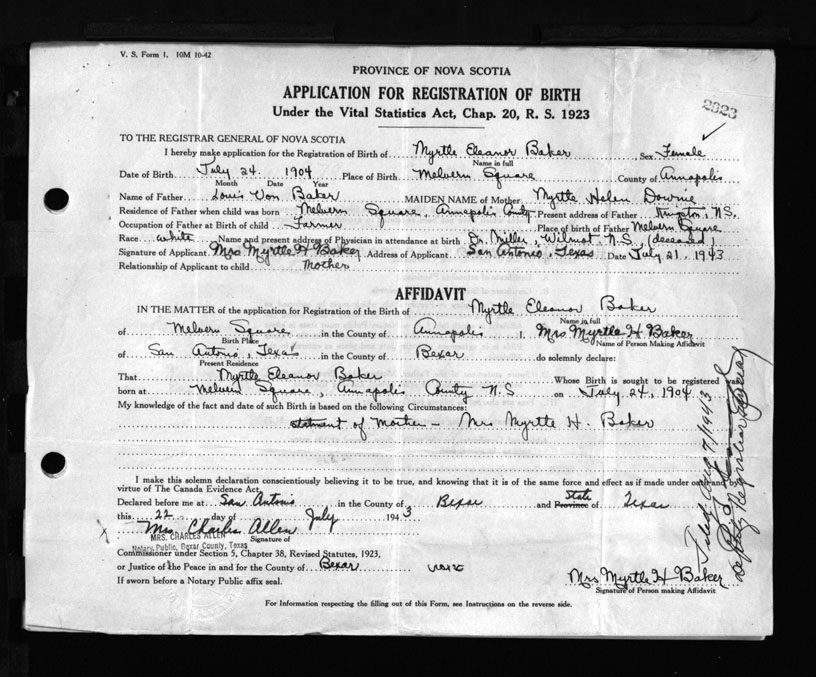 V. S. Form 1. 10M 10-42
PROVINCE OF NOVA SCOTIA
APPLICATION FOR REGISTRATION OF BIRTH
Under the Vital Statistics Act, Chap. 20, R. S. 1923
2823
TO THE REGISTRAR GENERAL OF NOVA SCOTIA
I hereby make application for the Registration of Birth of Myrtle Eleanor Baker Sex Female
Name in full
Date of Birth July 24 1904 Place of Birth Melvern Square County of Annapolis
Month Date Year
Name of Father Louis Von Baker MAIDEN NAME of Mother Myrtle Helen Downie
Residence of Father when child was born Melvern Square, Annapolis County Present address of Father Kingston, N.S.
Occupation of Father at Birth of child Farmer Place of birth of Father Melvern Square
Race white Name and present address of Physician in attendance at birth Dr. Miller, Wilmot N.S. (deceased)
Signature of Applicant Mrs Myrtle H Baker Address of Applicant San Antonio, Texas Date July 21, 1943
Relationship of Applicant to child Mother
AFFIDAVIT
IN THE MATTER of the application for Registration of the Birth of Myrtle Eleanor Baker
Name in full
of Melvern Square in the County of Annapolis I, Mrs Myrtle H Baker
Birth Place Name of Person Making Affidavit
of San Antonio, Texas in the County of Bexar do solemnly declare:
Present Residence
That Myrtle Eleanor Baker Whose Birth is sought to be registered was
born at Melvern Square, Annapolis County N.S. on July 24, 1904
My knowledge of the fact and date of such Birth is based on the following Circumstances:
statment of Mother - Mrs Myrtle H. Baker
I make this solemn declaration conscientiously believing it to be true, and knowing that it is of the same force and effect as if made under oath and by
virtue of The Canada Evidence Act.
Declared before me at San Antonio in the County of Bexar and State Province of Texas
this 22 day of July 1943
Mrs. Charles Allen
MRS. CHARLES ALLEN Signature of
Notary Public, Bexar County, Texas
Commissioner under Section 5, Chapter 38, Revised Statutes, 1923,
or Justice of the Peace in and for the County of Bexar
Mrs Myrtle H Baker
If sworn before a Notary Public affix seal.
Signature of Person making Affidavit
For Information respecting the filling out of this Form, see Instructions on the reverse side.
Filed Aug 7/1943
Deputy Registrar General